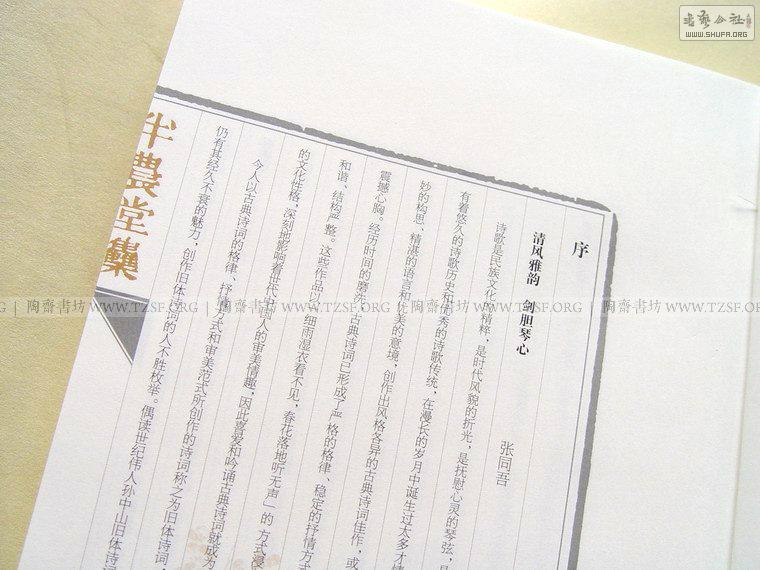 序
清风雅韵 剑胆琴心
张同吾
诗歌是民族文化的精粹，是时代风貌的折光，是抚慰心灵的琴弦，是
有着悠久的诗歌历史和优秀的诗歌传统，在漫长的岁月中诞生过太多才情
妙的构思、精湛的语言和优美的意境，创作出风格各异的古典诗词佳作，或
震撼心胸。经历时间的磨洗，古典诗词已形成了严格的格律、稳定的抒情方
和谐、结构严整。这些作品以「细雨湿衣看不见，春花落地听无声」的方式浸
的文化性格，深刻地影响着世代中国人的审美情趣，因此喜爱和吟诵古典诗词就成为
今人以古典诗词的格律、抒情方式和审美范式所创作的诗词称之为旧体诗词，
仍有其经久不衰的魅力，创作旧体诗词的人不胜枚举。偶读世纪伟人孙中山旧体诗词
半農堂集
書藝公社
WWW.SHUFA.ORG
RG | 陶齋書坊 WWW.TZSF.ORG | 陶齋書坊 WWW.TZSF.ORG | 陶齋書坊 WWW.TZSF.ORG | 陶齋書坊 WWW.TZSF.ORG